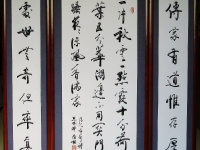 傳家有道惟存厚
一片秋雲一點霞十分荷
葉五分華湖邊不用關門
睡夜夜涼風香滿家
處世無奇但率真